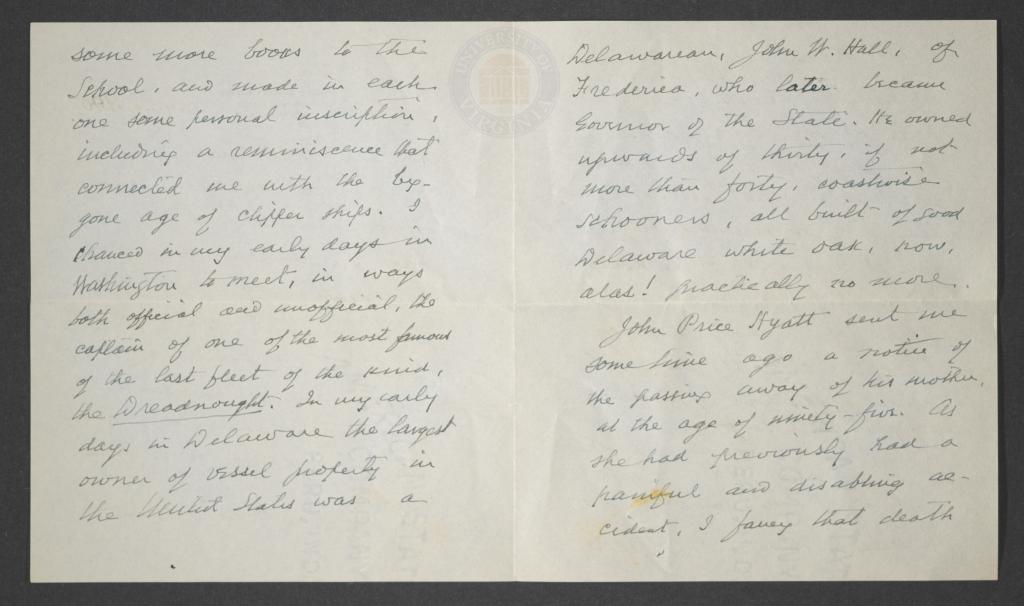 some more books to the
School, and made in each
one some personal inscription,
including a reminiscence that
connected me with the by-
gone age of clipper ships. I
chanced in my early days in
Washington to meet, in ways
both official and unofficial, the
captain of one of the most famous
of the last fleet of the kind,
the Dreadnought. In my early
days in Delaware the largest
owner of vessel property in
the United States was a
Delawarean, John W. Hall, of
Frederica, who later became
Governor of the State. He owned
upwards of thirty, if not
more than forty, coastwise
schooners, all built of good
Delaware white oak, now,
alas! practically no more.
John Price Hyatt sent me
some time ago a notice of
the passing away of his mother,
at the age of ninety-five. As
she had previously had a
painful and disabling ac-
cident, I fancy that death
UNIVERSITY OF
VIRGINIA